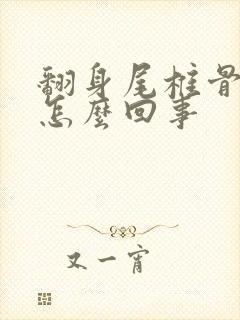 翻身尾椎骨
怎麼回事
又一宵